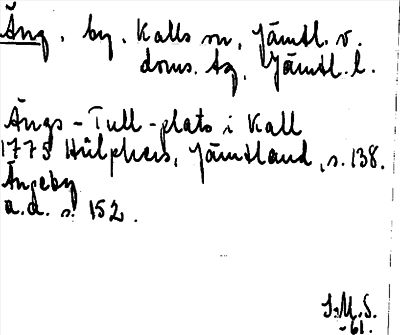 Äng, by. Kalls sn, Jämtl. v.
doms. tg, Jämtl. l.
Ängs-Tull-plats i Kall
1775 Hülphers, Jämtland, s. 138.
Ängeby
a.a. s. 152.
S.M.S.
-61.